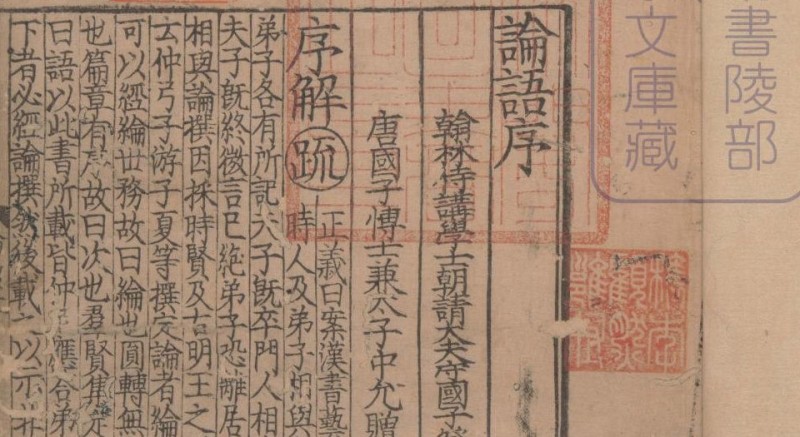 書陵部
文庫藏
論語序
翰林侍講學士朝請大夫守國子
唐國子博士兼太子中允贈
序解疏
正義曰案漢書藝
時人及弟子相與
弟子各有所記夫子旣卒門人相
夫子旣終微言已絶弟子恐離居
相與論撰因採時賢及古明王之
云仲弓子游子夏等撰定論者綸
可以經綸世務故曰綸也圓轉無
也篇章有序故曰次也群賢集定
曰語以此書所載皆仲尼應答弟
下者必經論撰然後載之以示非